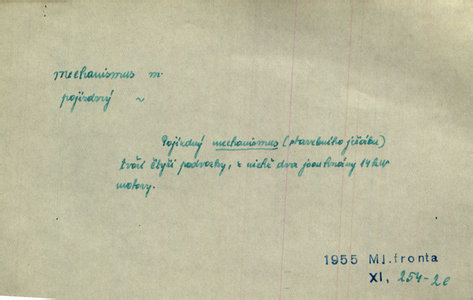 mechanismus m.
pojízdný ~
Pojízdný mechanismus (stavebního jeřábu)
tvoří čtyři podvozky, z nichž dva jsou hnány 14 kW
motory.
1955 Ml.fronta
XI, 254-2c